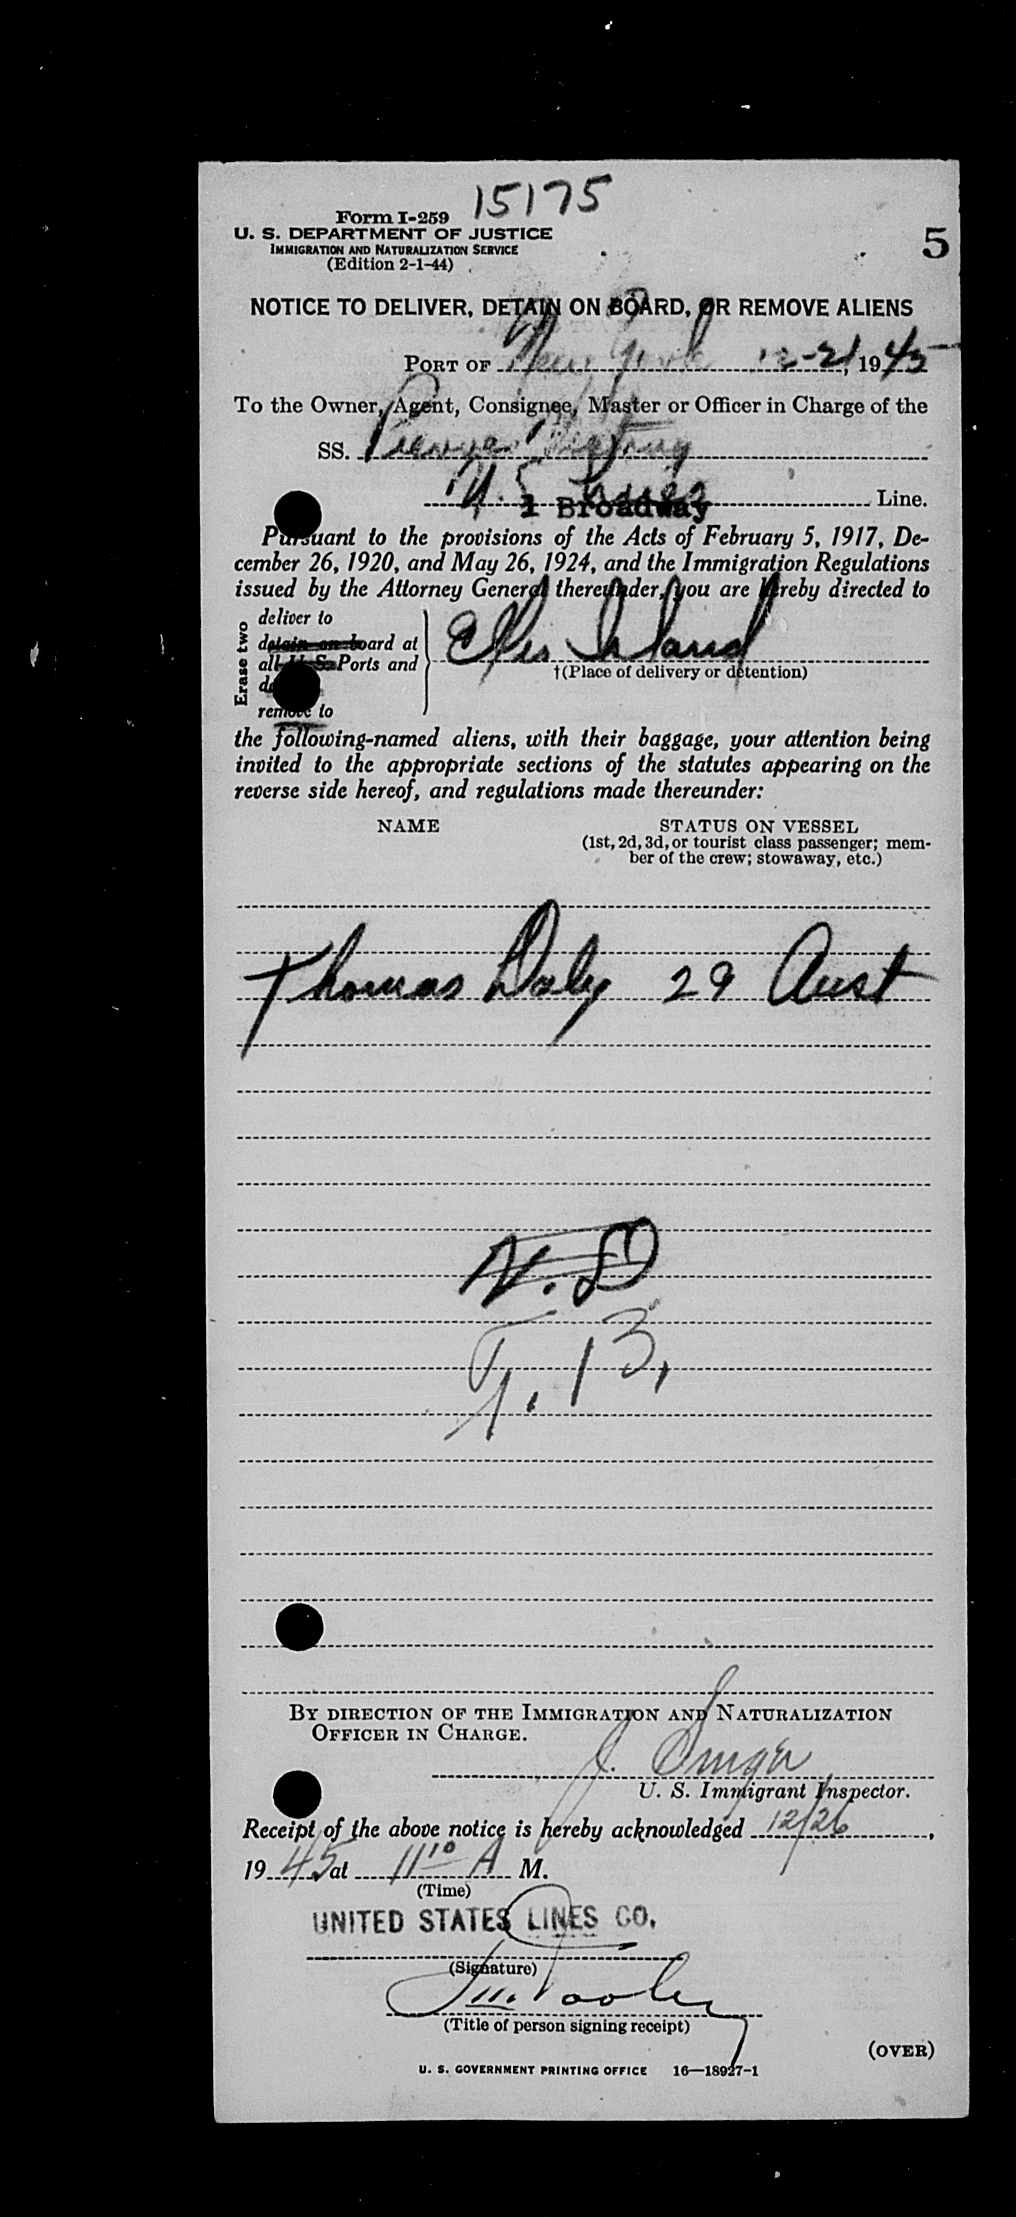 15175
Form I-259
U. S. DEPARTMENT OF JUSTICE
IMMIGRATION AND NATURALIZATION SERVICE
(Edition 2-1-44)
5
NOTICE TO DELIVER, DETAIN ON BOARD, OR REMOVE ALIENS
PORT OF New York 12-21, 1945
To the Owner, Agent, Consignee, Master or Officer in Charge of the
SS. Pierre
U.S. Lines Line.
1 Broadway
Pursuant to the provisions of the Acts of February 5, 1917, De-
cember 26, 1920, and May 26, 1924, and the Immigration Regulations
issued by the Attorney General thereunder, you are hereby directed to
Erase two
deliver to
detain on board at
all U. S. Ports and
remove to
Ellis Island
†(Place of delivery or detention)
the following-named aliens, with their baggage, your attention being
invited to the appropriate sections of the statutes appearing on the
reverse side hereof, and regulations made thereunder:
NAME STATUS ON VESSEL
(1st, 2d, 3d, or tourist class passenger; mem-
ber of the crew; stowaway, etc.)
Thomas Daly 29 Aust
By direction of the Immigration and Naturalization
Officer in Charge.
J. Singer
U. S. Immigrant Inspector.
Receipt of the above notice is hereby acknowledged 12/26,
1945 at 11 10 A M.
(Time)
UNITED STATES LINES CO.
(Signature)
(Title of person signing receipt)
(OVER)
U. S. GOVERNMENT PRINTING OFFICE 16—18927-1